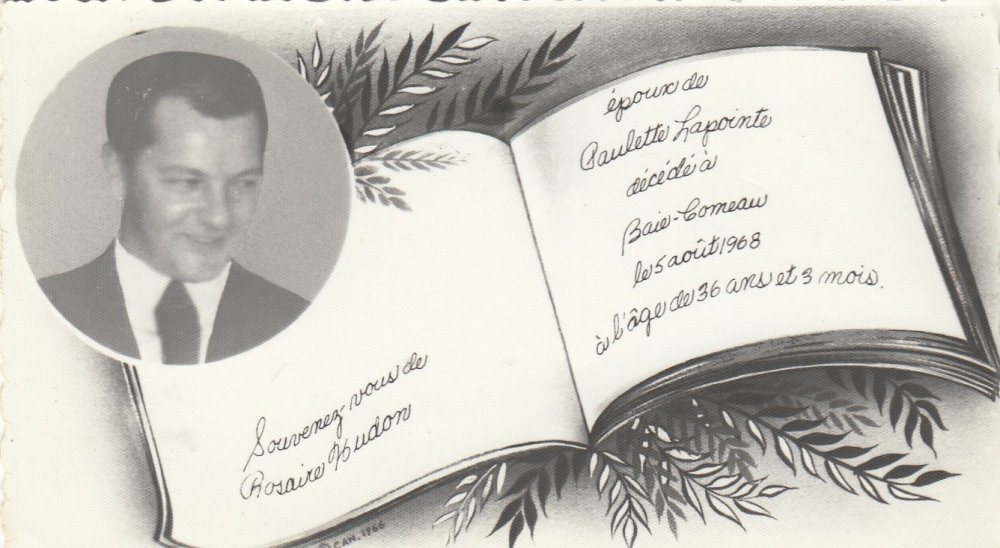 Souvenez-vous de
Rosaire Hudon
époux de
Paulette Lapointe
décédé à
Baie-Comeau
le 5 août 1968
à l'âge de 36 ans et 3 mois.
© CAN. 1966